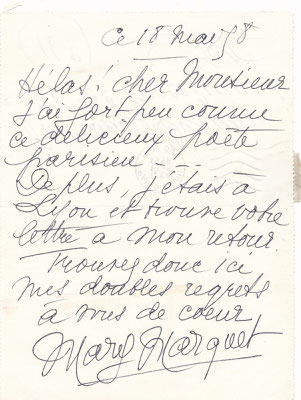 Ce 18 mai 58
Hélas! cher Monsieur
J'ai fort peu connu
ce délicieux poète
parisien
De plus, j'étais à
Lyon et trouve votre
lettre à mon retour.
Trouvez donc ici
mes doubles regrets
de coeur
Mary Marquet